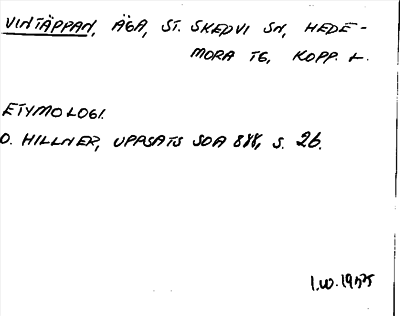 VINTÄPPAN, ÄGA, ST. SKEDVI SN, HEDE-
MORA TG, KOPP. L.
ETYMOLOGI.
O. HILLNER, UPPSATS SOA 888, S. 26.
I.W. 1955